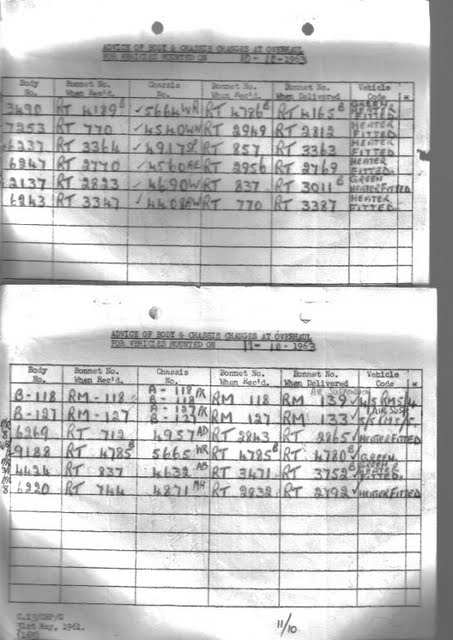 ADVICE OF BODY & CHASSIS CHANGES AT OVERHAUL
FOR VEHICLES MOUNTED ON 10-10-1963
Body No. Bonnet No. When Rec'd. Chassis No. Bonnet No. When Rec'd. Bonnet No. When Delivered Vehicle Code *
3490 RT 4189 B ✓ 5664 WR RT 4786 B RT 4165 B GREEN HEATER FITTED
7253 RT 770 ✓ 4540 RT 2949 RT 2812 HEATER FITTED.
6237 RT 3364 ✓ 4917 RT 857 RT 3363 HEATER FITTED.
6247 RT 2770 ✓ 4560 RT 2956 RT 2769 HEATER FITTED.
2137 RT 2822 ✓ 4690 RT 837 RT 3011 B GREEN HEATER FITTED
6243 RT 3347 ✓ 4408 RT 770 RT 3387 HEATER FITTED.
ADVICE OF BODY & CHASSIS CHANGES AT OVERHAUL
FOR VEHICLES MOUNTED ON 11-10-1963
Body No. Bonnet No. When Rec'd. Chassis No. Bonnet No. When Rec'd. Bonnet No. When Delivered Vehicle Code *
B-118 RM-118 A-118 B-118 RM 118 RM 139 ✓
B-127 RM-127 A-127 B-127 RM 127 RM 133 ✓
6269 RT 712 4957 AD RT 2843 RT 2865 ✓ HEATER FITTED
9188 RT 4785 B 5665 WR RT 4785 B RT 4780 B ✓ GREEN
4424 RT 837 4632 AB RT 3471 RT 3752 ✓ GREEN HEATER FITTED.
6220 RT 744 4871 RT 2832 RT 2792 ✓ HEATER FITTED
31st May, 1961.
11/10